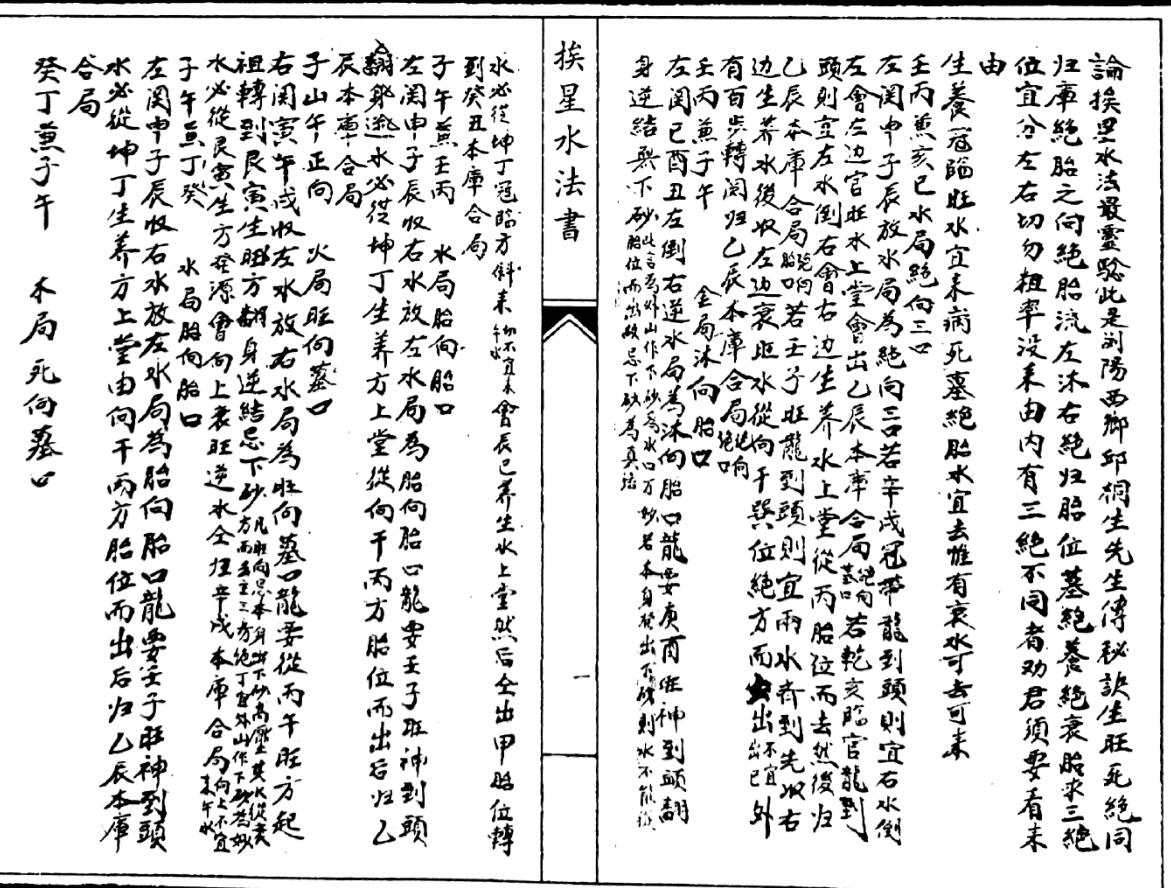 論挨星水法最靈驗此是浏陽西鄉邱桐生先生傳秘訣生旺死絕同
归庫絕胎之向絕胎流左沐右絕归胎位墓絕養絕衰胎求三絕
位宜分左右切勿粗率没来由内有三絕不同者劝君須要看来
由
生養冠臨旺水宜来病死墓絕胎水宜去惟有衰水可去可来
壬丙蕉亥巳水局絕向三口
左関申子辰放水局為絕向三口若辛戌冠带龍到頭則宜右水倒
左會左边官旺水上堂會出乙辰本庫合局絕向墓口若乾亥臨官龍到
頭則立左水倒右會右边生养水上堂從丙胎位而去然後归
乙辰本庫合局絕向胎口若壬子旺龍到頭則宜兩水齐到先收右
边生养水後收左边衰旺水從向干巽位絕方而出不宜出巳外
有百步轉関归乙辰本庫合局絕向絕口
壬丙兼子午　金局沐向胎口
左関巳酉丑左倒右逆水局為沐向胎口龍要庚酉旺神到頭翻
身逆結無下砂此言為外山作下砂為水口万妙若本身發出下砂則水不能從
胎位而出故忌下砂為真结
挨星水法書
一
水必從坤丁冠臨方斜来切不宜来午水會辰巳养生水上堂然后仝出甲胎位轉
到癸丑本庫合局
子午蕉壬丙　水局胎向胎口
左関申子辰收右水放左水局為胎向胎口龍要壬子旺神到頭
翻身逆水必從坤丁生养方上堂從向干丙方胎位而出后归乙
辰本庫合局
子山午正向　火局旺向墓口
右関寅午戌收左水放右水局為旺向墓口龍要從丙午旺方起
祖轉到艮寅生旺方翻身逆結忌下砂凡旺向忌本身出下砂高壓其火從衰
方而去主三方絕丁在外山作下砂為妙
水必從艮寅生方發源會向上衰旺逆水仝归辛戌本庫合局向上不宜来午水
子午蕉丁癸　水局胎向胎口
左関申子辰收右水放左水局為胎向胎口龍要壬子旺神到頭
水必從坤丁生养方上堂由向干丙方胎位而出后归乙辰本庫
合局
癸丁蕉子午　木局死向墓口